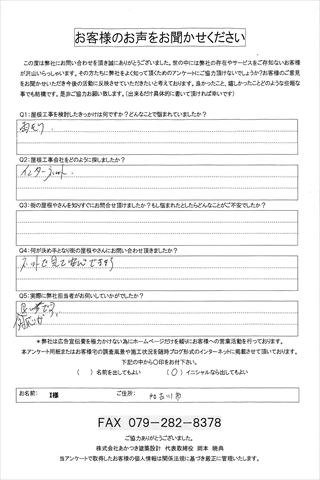 お客様のお声をお聞かせください
この度は弊社にお問い合わせを頂き誠にありがとうございます。世の中には弊社の存在やサービスをご存知ないお客様
が沢山いらっしゃいます。その方たちに弊社をよく知って頂くためのアンケートにご協力頂けないでしょうか?お客様のご意見
をお聞かせいただき今後の活動に反映させていただきたいと考えております。良かったこと、嬉しかったことどのような些細な
事でも結構です。是非ご協力お願い致します。(出来るだけ具体的に書いて頂ければ幸いです)
Q1:屋根工事を検討したきっかけは何ですか?どんなことで悩まれていましたか?
雨もり
Q2:屋根工事会社をどのように探しましたか?
インターネット.
Q3:街の屋根やさんを知りすぐにお問合せ頂けましたか?もし悩まれたとしたらどんなことがご不安でしたか?
Q4:何が決め手となり街の屋根やさんにお問い合わせ頂きましたか?
ネットで見て
Q5:実際に弊社担当者がお伺いしていかがでしたか?
*弊社は広告宣伝費を極力かけない為にホームページだけを頼りにお客様への営業活動を行っております。
本アンケート用紙またはお客様宅の調査風景や施工状況を随時ブログ形式のインターネットに掲載させて頂いております。
下記の中から〇印をお付下さい。
( )名前も出してもよい (〇)イニシャルなら出してもよい
お名前: I様 ご住所: 加古川市
FAX 079-282-8378
ご協力ありがとうございました。
株式会社あかつき建築設計 代表取締役 岡本 暁典
当アンケートで取得したお客様の個人情報は関係法規に基づき厳正に管理いたします。